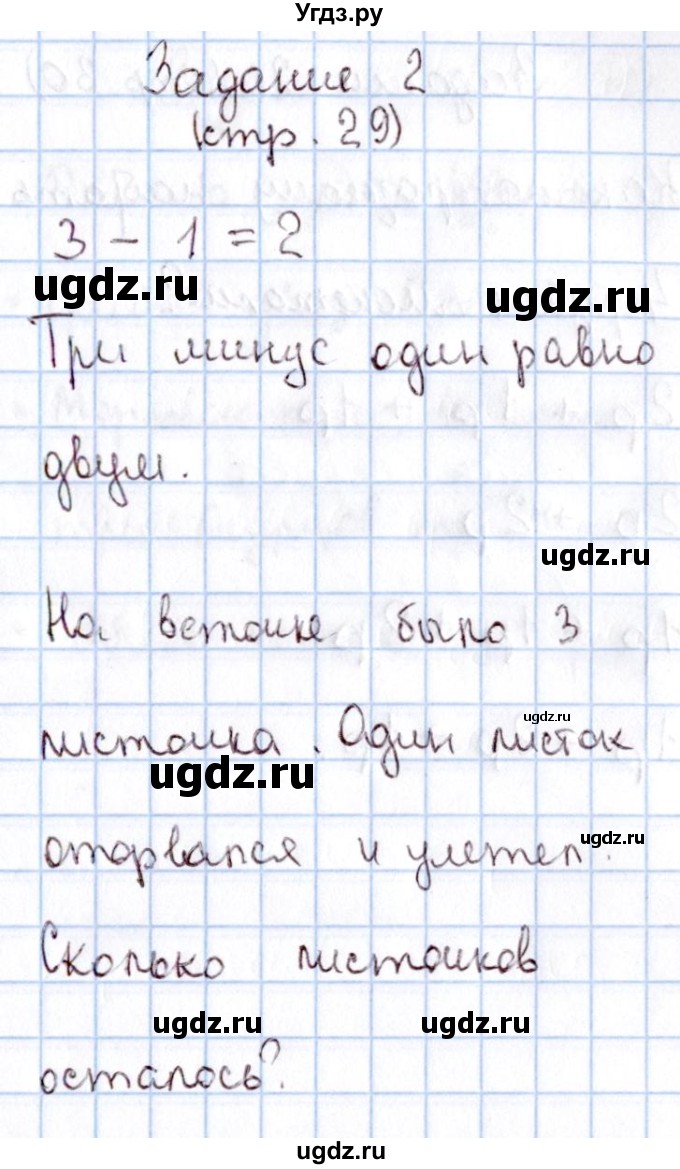 Угдз.ру
Задание 2
(стр. 29)
3 - 1 = 2
ugdz.ru ugdz.ru
Три минус один равно
двум.
ugdz.ru
На веточке было 3
ugdz.ru
листочка. Один листок
ugdz.ru
ugdz.ru
оторвался и улетел.
Сколько листочков
ugdz.ru ugdz.ru
осталось?
ugdz.ru